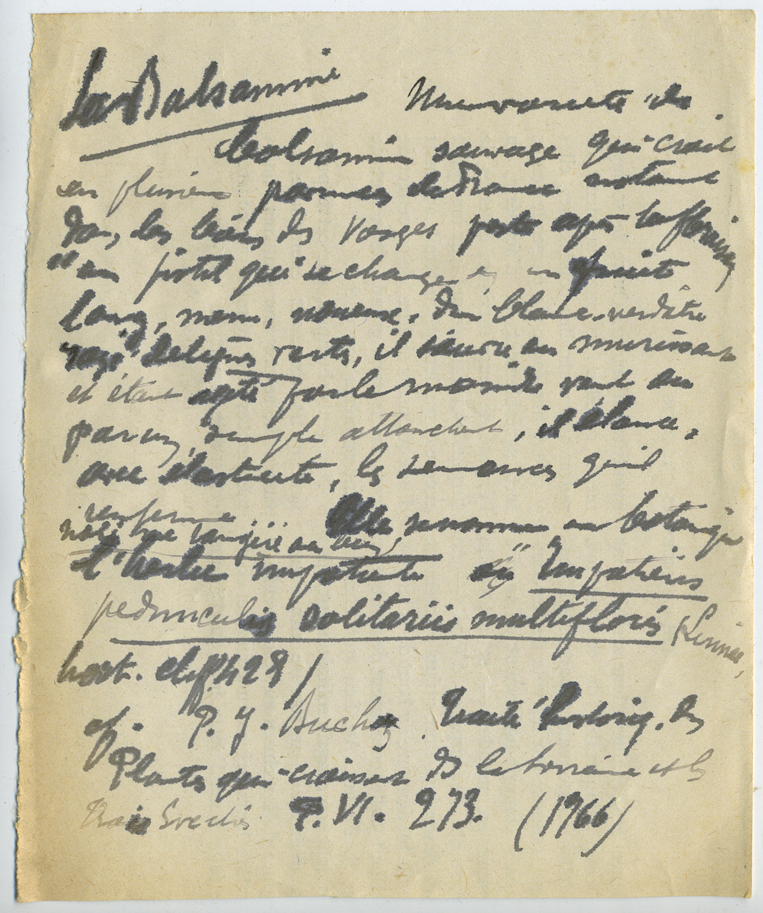 La Balsamine
Une variété de
balsamine sauvage qui croît
en plusieurs de France notamt
dans les bois des Vosges porte après la floraison
un pistil qui se change en un fruit
long, menu, noueux, d'un blanc verdâtre
rayé de lignes vertes, il s'ouvre en murissant
et étant agité par le moindre vent ou
par un simple attouchent, il élance,
avec élasticité, les semences qu'il
renferme
Elle se nomme en botanique
l'herbe impatiente ou Impatiens
pedunculis solitariis multifloris (Linnae,
hort. cliff 428)
cf. P. J. Buchoz Traité historiq. des
Plantes qui croissent ds la Lorraine et les
Trois Evechés T. VI. 273. (1966)